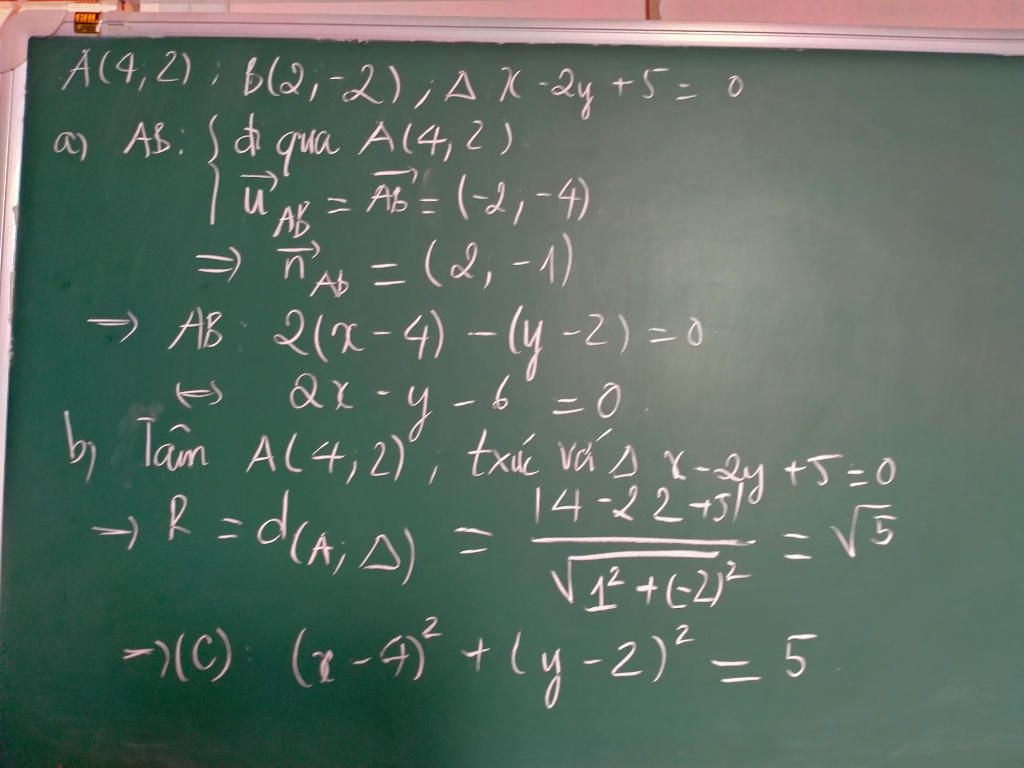 A(4;2); B(2;-2); Δ x-2y+5=0
a) AB: { đi qua A(4;2)
u⃗_AB = AB⃗ = (-2;-4)
⇒ n⃗_AB = (2;-1)
→ AB: 2(x-4) - (y-2) = 0
↔ 2x - y - 6 = 0.
b) Tâm A(4;2), txúc với Δ x-2y+5=0
→ R = d(A;Δ) = |4-2 2+5| / √(1²+(-2)²) = √5
→ (C): (x-4)² + (y-2)² = 5.